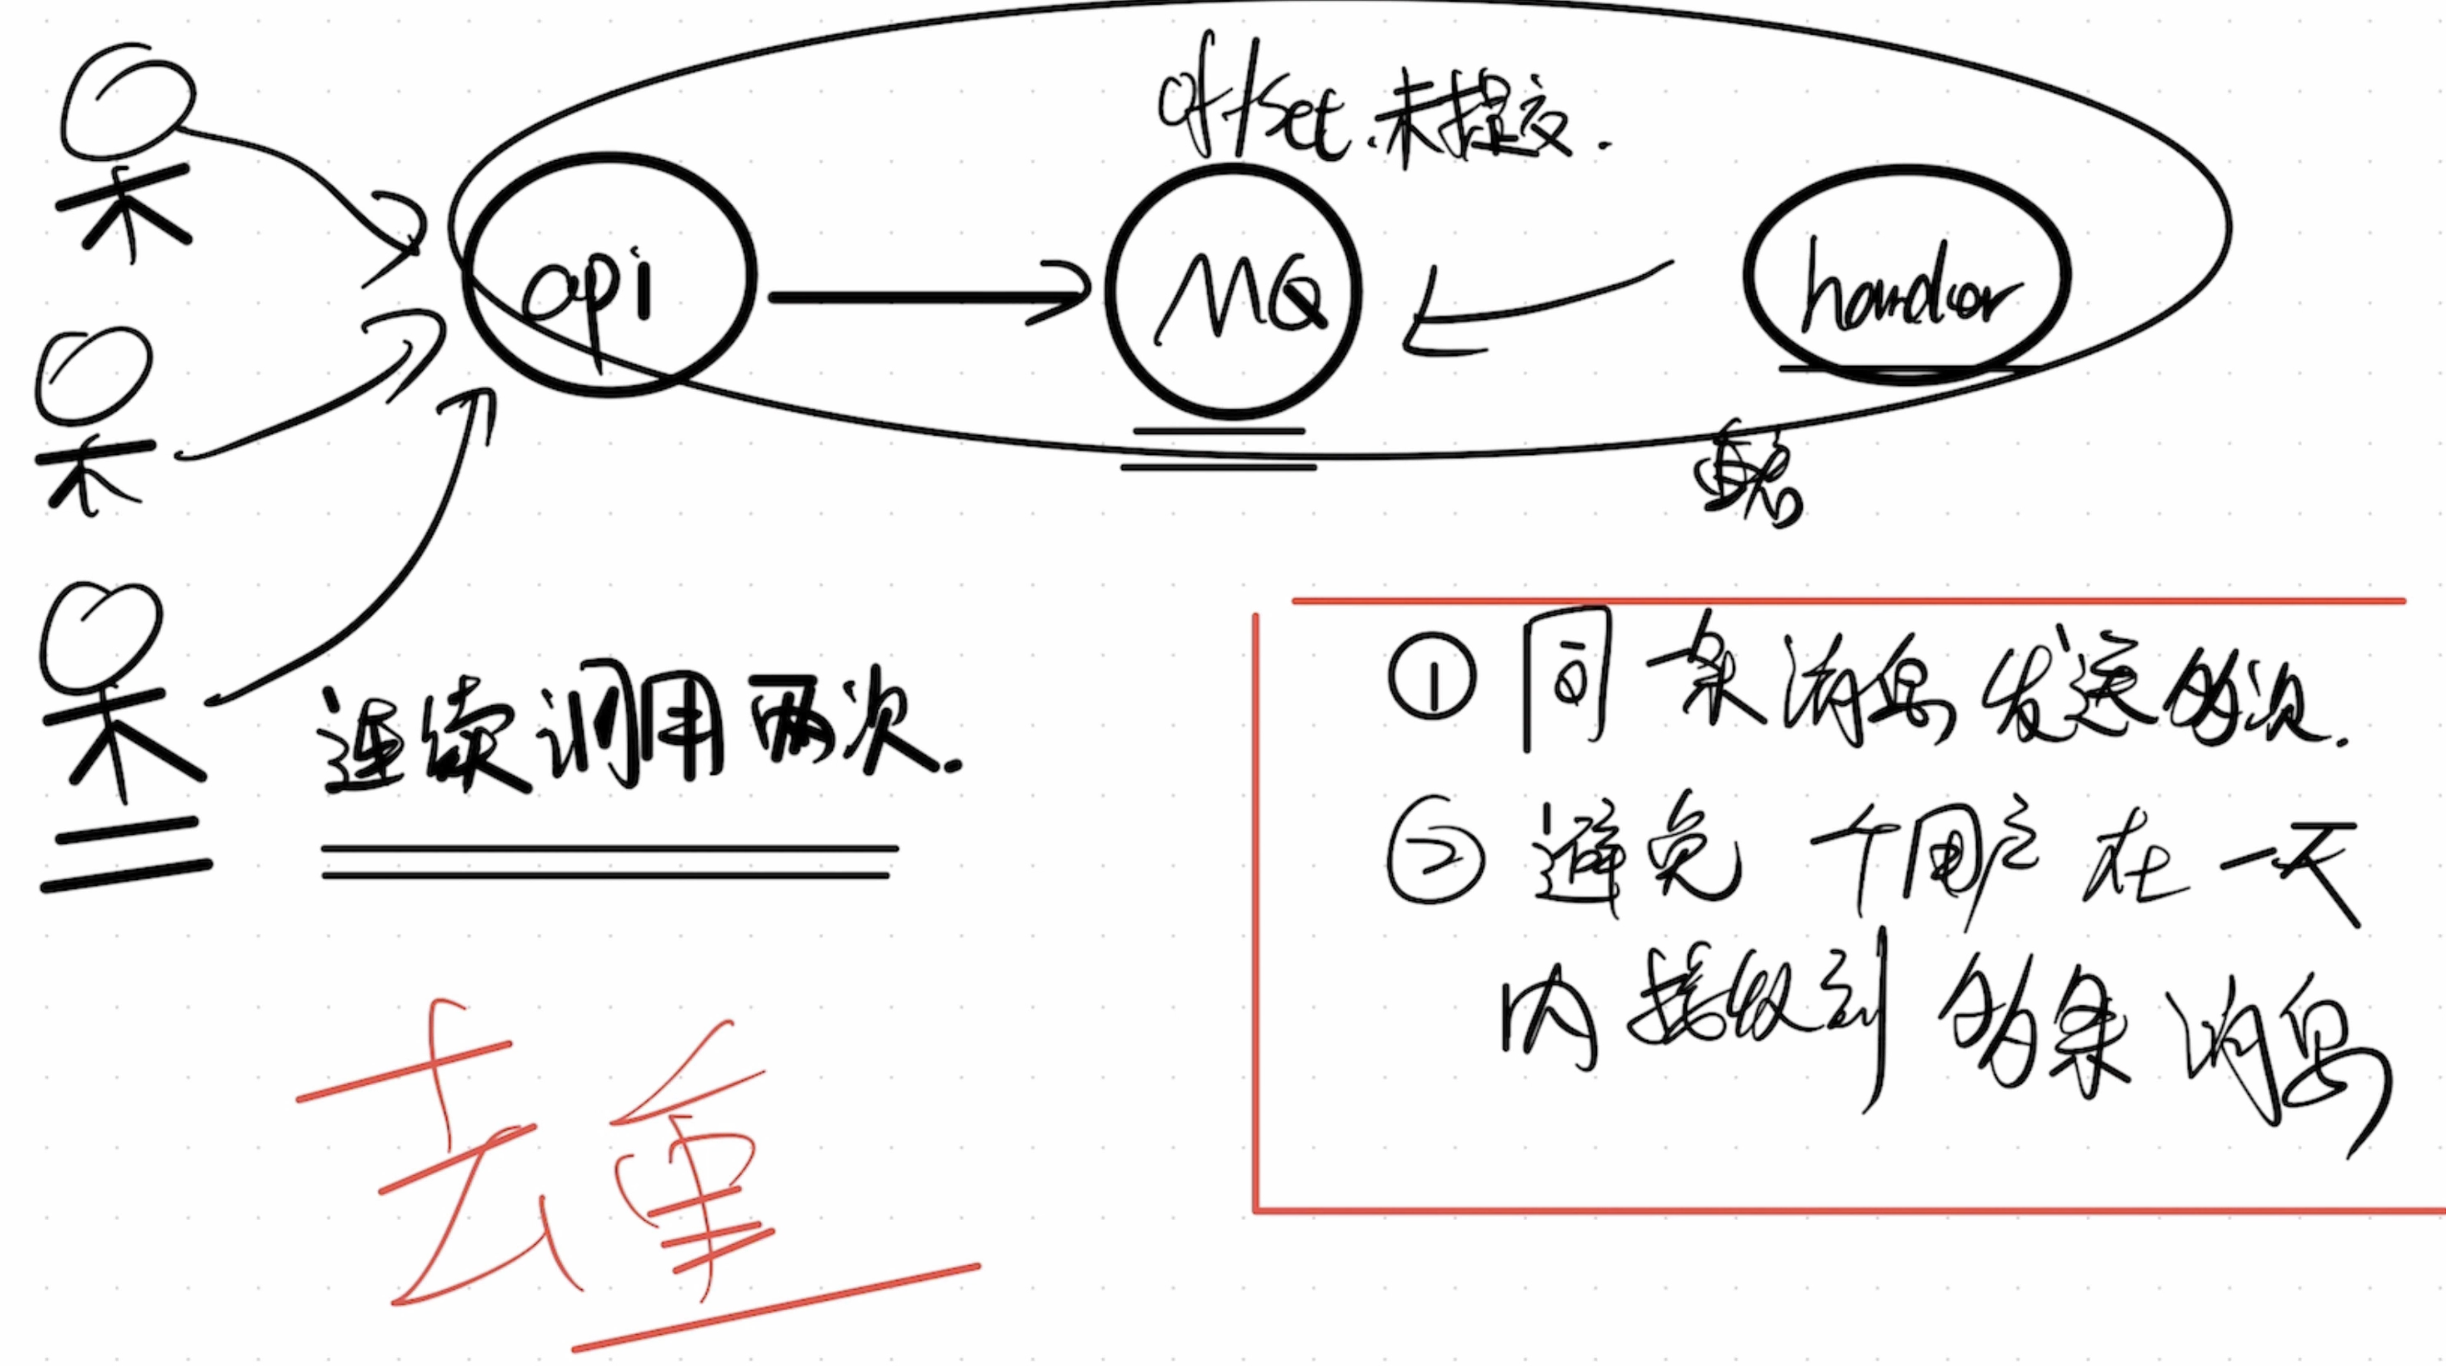 offset.未提交.
api
MQ
handler
连续调用两次.
①同一条消息发送多次.
②避免 一个用户在一天
内接收到多条消息
去重